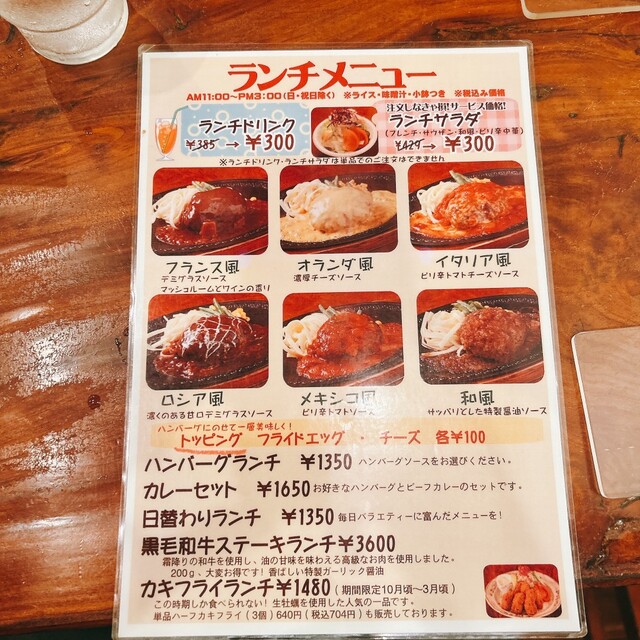 ランチメニュー
AM11:00～PM3:00(日・祝日除く) ※ライス・味噌汁・小鉢つき ※税込み価格
ランチドリンク
¥385 → ¥300
注文しなきゃ損!サービス価格!
ランチサラダ
(フレンチ・サウザン・和風・ピリ辛中華)
¥429 → ¥300
※ランチドリンク・ランチサラダは単品でのご注文はできません
フランス風
デミグラスソース
マッシュルームとワインの香り
オランダ風
濃厚チーズソース
イタリア風
ピリ辛トマトチーズソース
ロシア風
濃くのある甘口デミグラスソース
メキシコ風
ピリ辛トマトソース
和風
サッパリとした特製醤油ソース
ハンバーグにのせて一層美味しく!
トッピング フライドエッグ ・ チーズ 各¥100
ハンバーグランチ ¥1350 ハンバーグソースをお選びください。
カレーセット ¥1650 お好きなハンバーグとビーフカレーのセットです。
日替わりランチ ¥1350 毎日バラエティーに富んだメニューを!
黒毛和牛ステーキランチ¥3600
霜降りの和牛を使用し、油の甘味を味わえる高級なお肉を使用しました。
200g、大変お得です!香ばしい特製ガーリック醤油
カキフライランチ¥1480 (期間限定10月頃～3月頃)
この時期しか食べられない!生牡蠣を使用した人気の一品です。
単品ハーフカキフライ(3個)640円(税込704円)も販売しております。